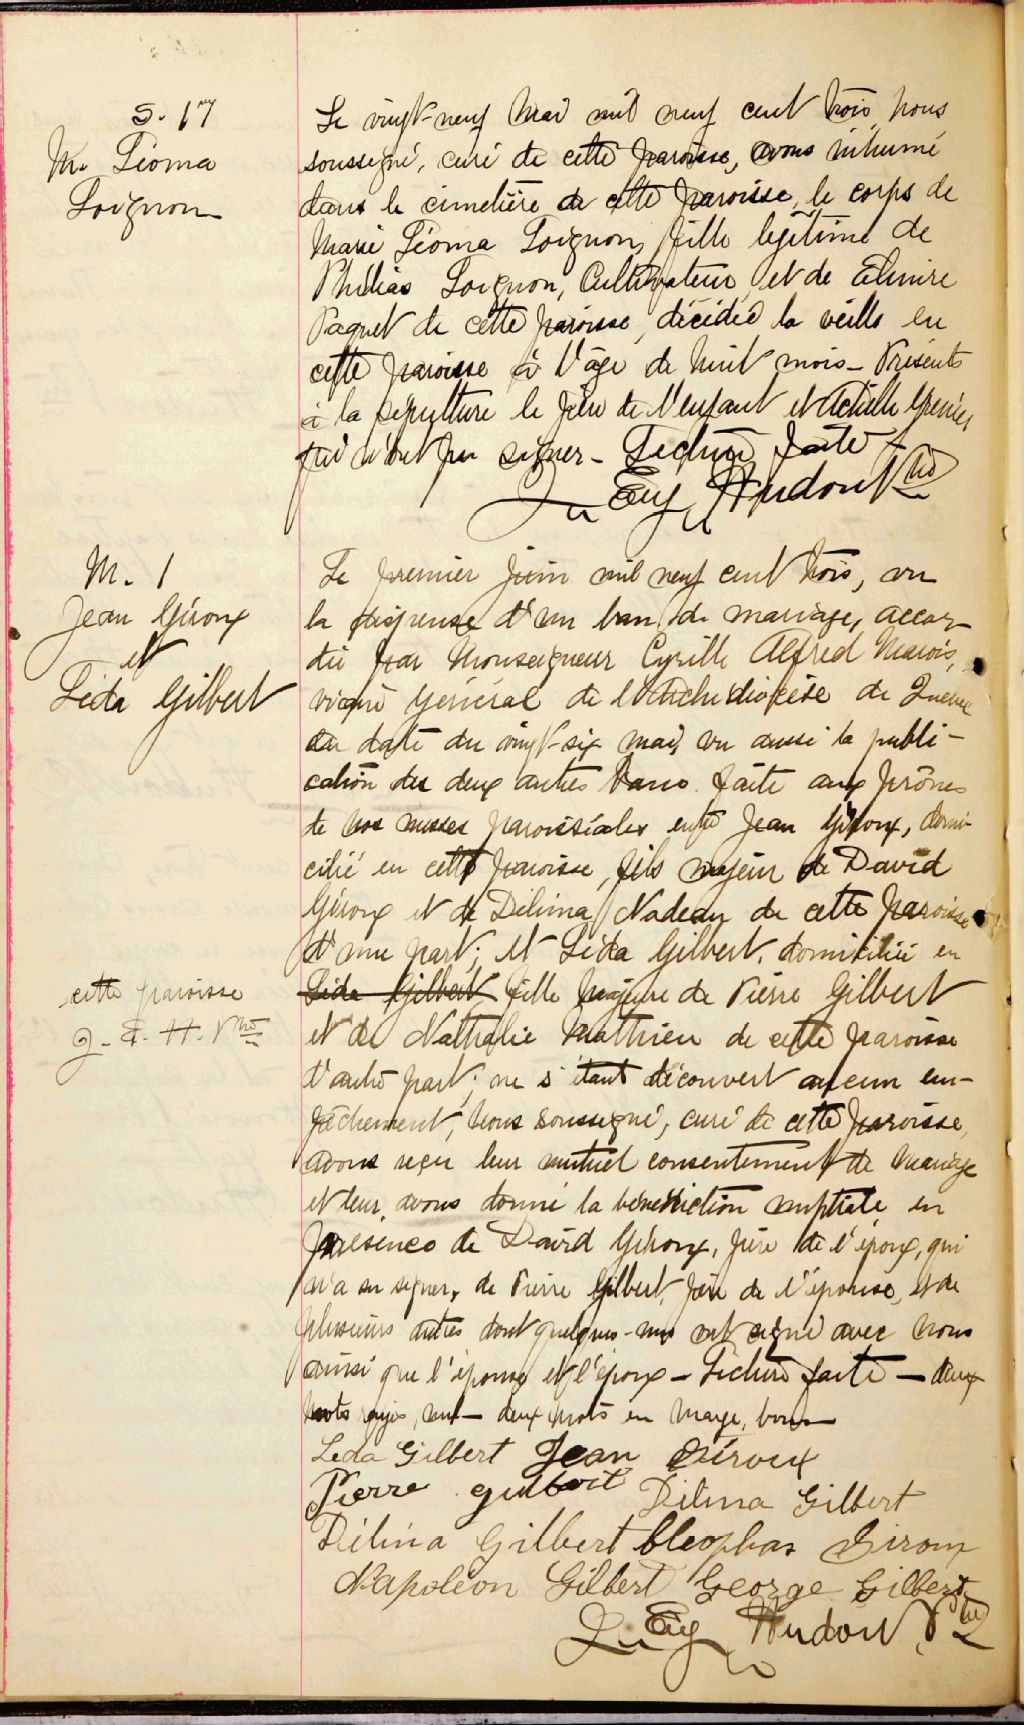 S. 17
M. Léoma
Loignon
Le vingt-neuf Mai mil neuf cent trois, nous
soussigné, curé de cette paroisse, avons inhumé
dans le cimetière de cette paroisse, le corps de
Marie Léoma Loignon, fille légitime de
Philias Loignon, Cultivateur, et de Elmire
Paquet de cette paroisse, décédée la veille en
cette paroisse à l'âge de huit mois - Présents
à la sépulture le père de l'enfant et Achille Grenier
qui n'ont pu signer - Lecture faite -
J. Eug. Hudon Ptre
M. 1
Jean Giroux
et
Léda Gilbert
Le premier juin mil neuf cent trois, vu
la dispense d'un ban de mariage, accor-
dée par Monseigneur Cyrille Alfred Marois,
vicaire Général de l'Archidiocèse de Québec
en date du vingt-six mai, vu aussi la publi-
cation des deux autres bans faite aux prônes
de nos messes paroissiales entre Jean Giroux, domi-
cilié en cette paroisse, fils majeur de David
Giroux et de Délima Nadeau de cette paroisse
d'une part; et Léda Gilbert, domiciliée en
cette paroisse
J. E. H. Ptre
Léda Gilbert fille majeure de Pierre Gilbert
et de Nathalie Mathieu de cette paroisse
d'autre part; ne s'étant découvert aucun em-
pêchement, Nous soussigné, curé de cette paroisse,
avons reçu leur mutuel consentement de mariage
et leur avons donné la bénédiction nuptiale en
présence de David Giroux, père de l'époux, qui
n'a su signer, de Pierre Gilbert, père de l'épouse, et de
plusieurs autres dont quelques-uns ont signé avec nous
ainsi que l'épouse et l'époux - Lecture faite - deux
mots rayés, nuls - deux mots en marge, bons -
Leda Gilbert Jean Giroux
Pierre Gilbert Dilina Gilbert
Délina Gilbert Cleophas Giroux
Napoléon Gilbert George Gilbert
J. Eug. Hudon Ptre